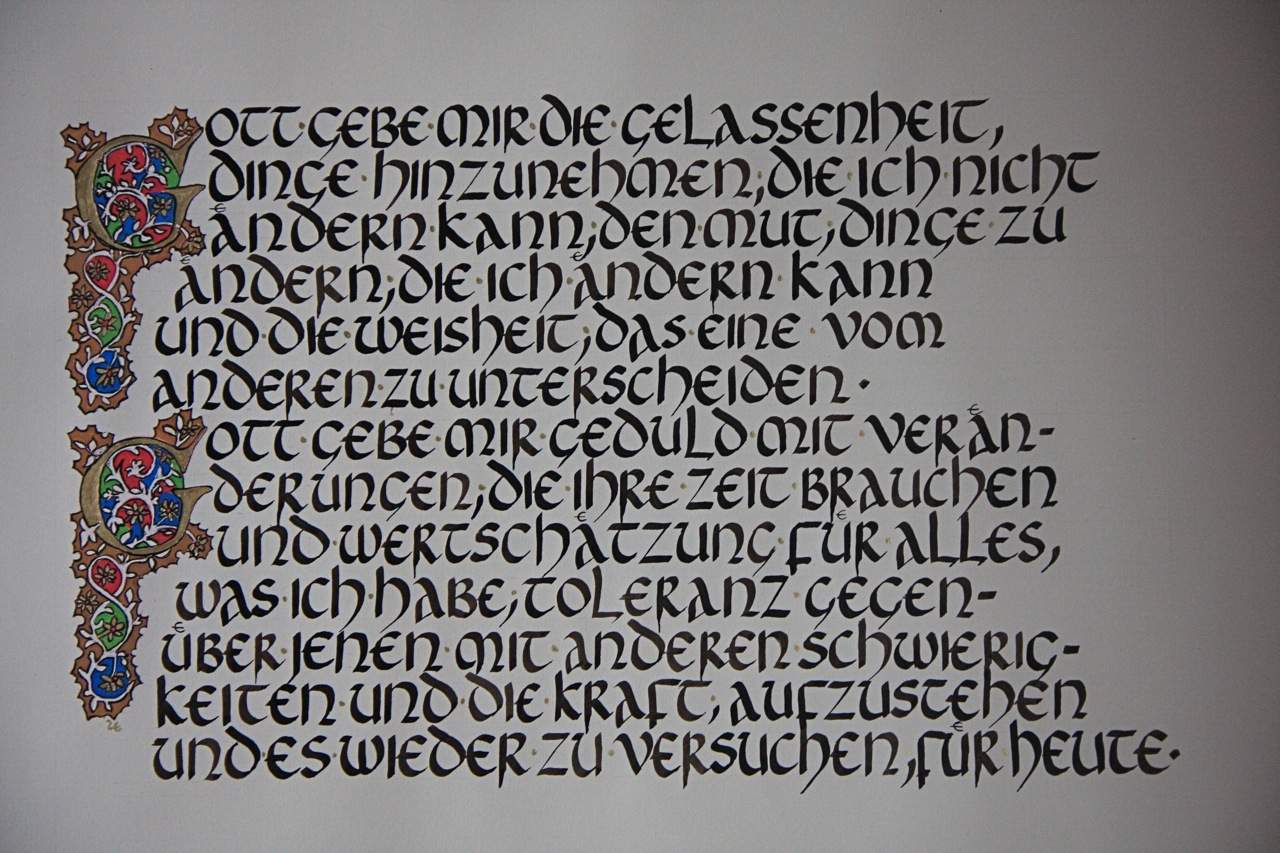 Gott·gebe·mir·die·gelassenheit,
dinge·hinzunehmen,die·ich·nicht
aͤndern·kann,den·mut,dinge·zu
aͤndern,die·ich·aͤndern·kann
und·die·weisheit,das·eine·vom
anderen·zu·unterscheiden·
Gott·gebe·mir·geduld·mit·veraͤn-
derungen,die·ihre·zeit·brauchen
und·wertschaͤtzung·fuͤr·alles,
was·ich·habe,toleranz·gegen-
uͤber·jenen·mit·anderen·schwierig-
keiten·und·die·kraft,aufzustehen
und·es·wieder·zu·versuchen,fuͤr·heute·